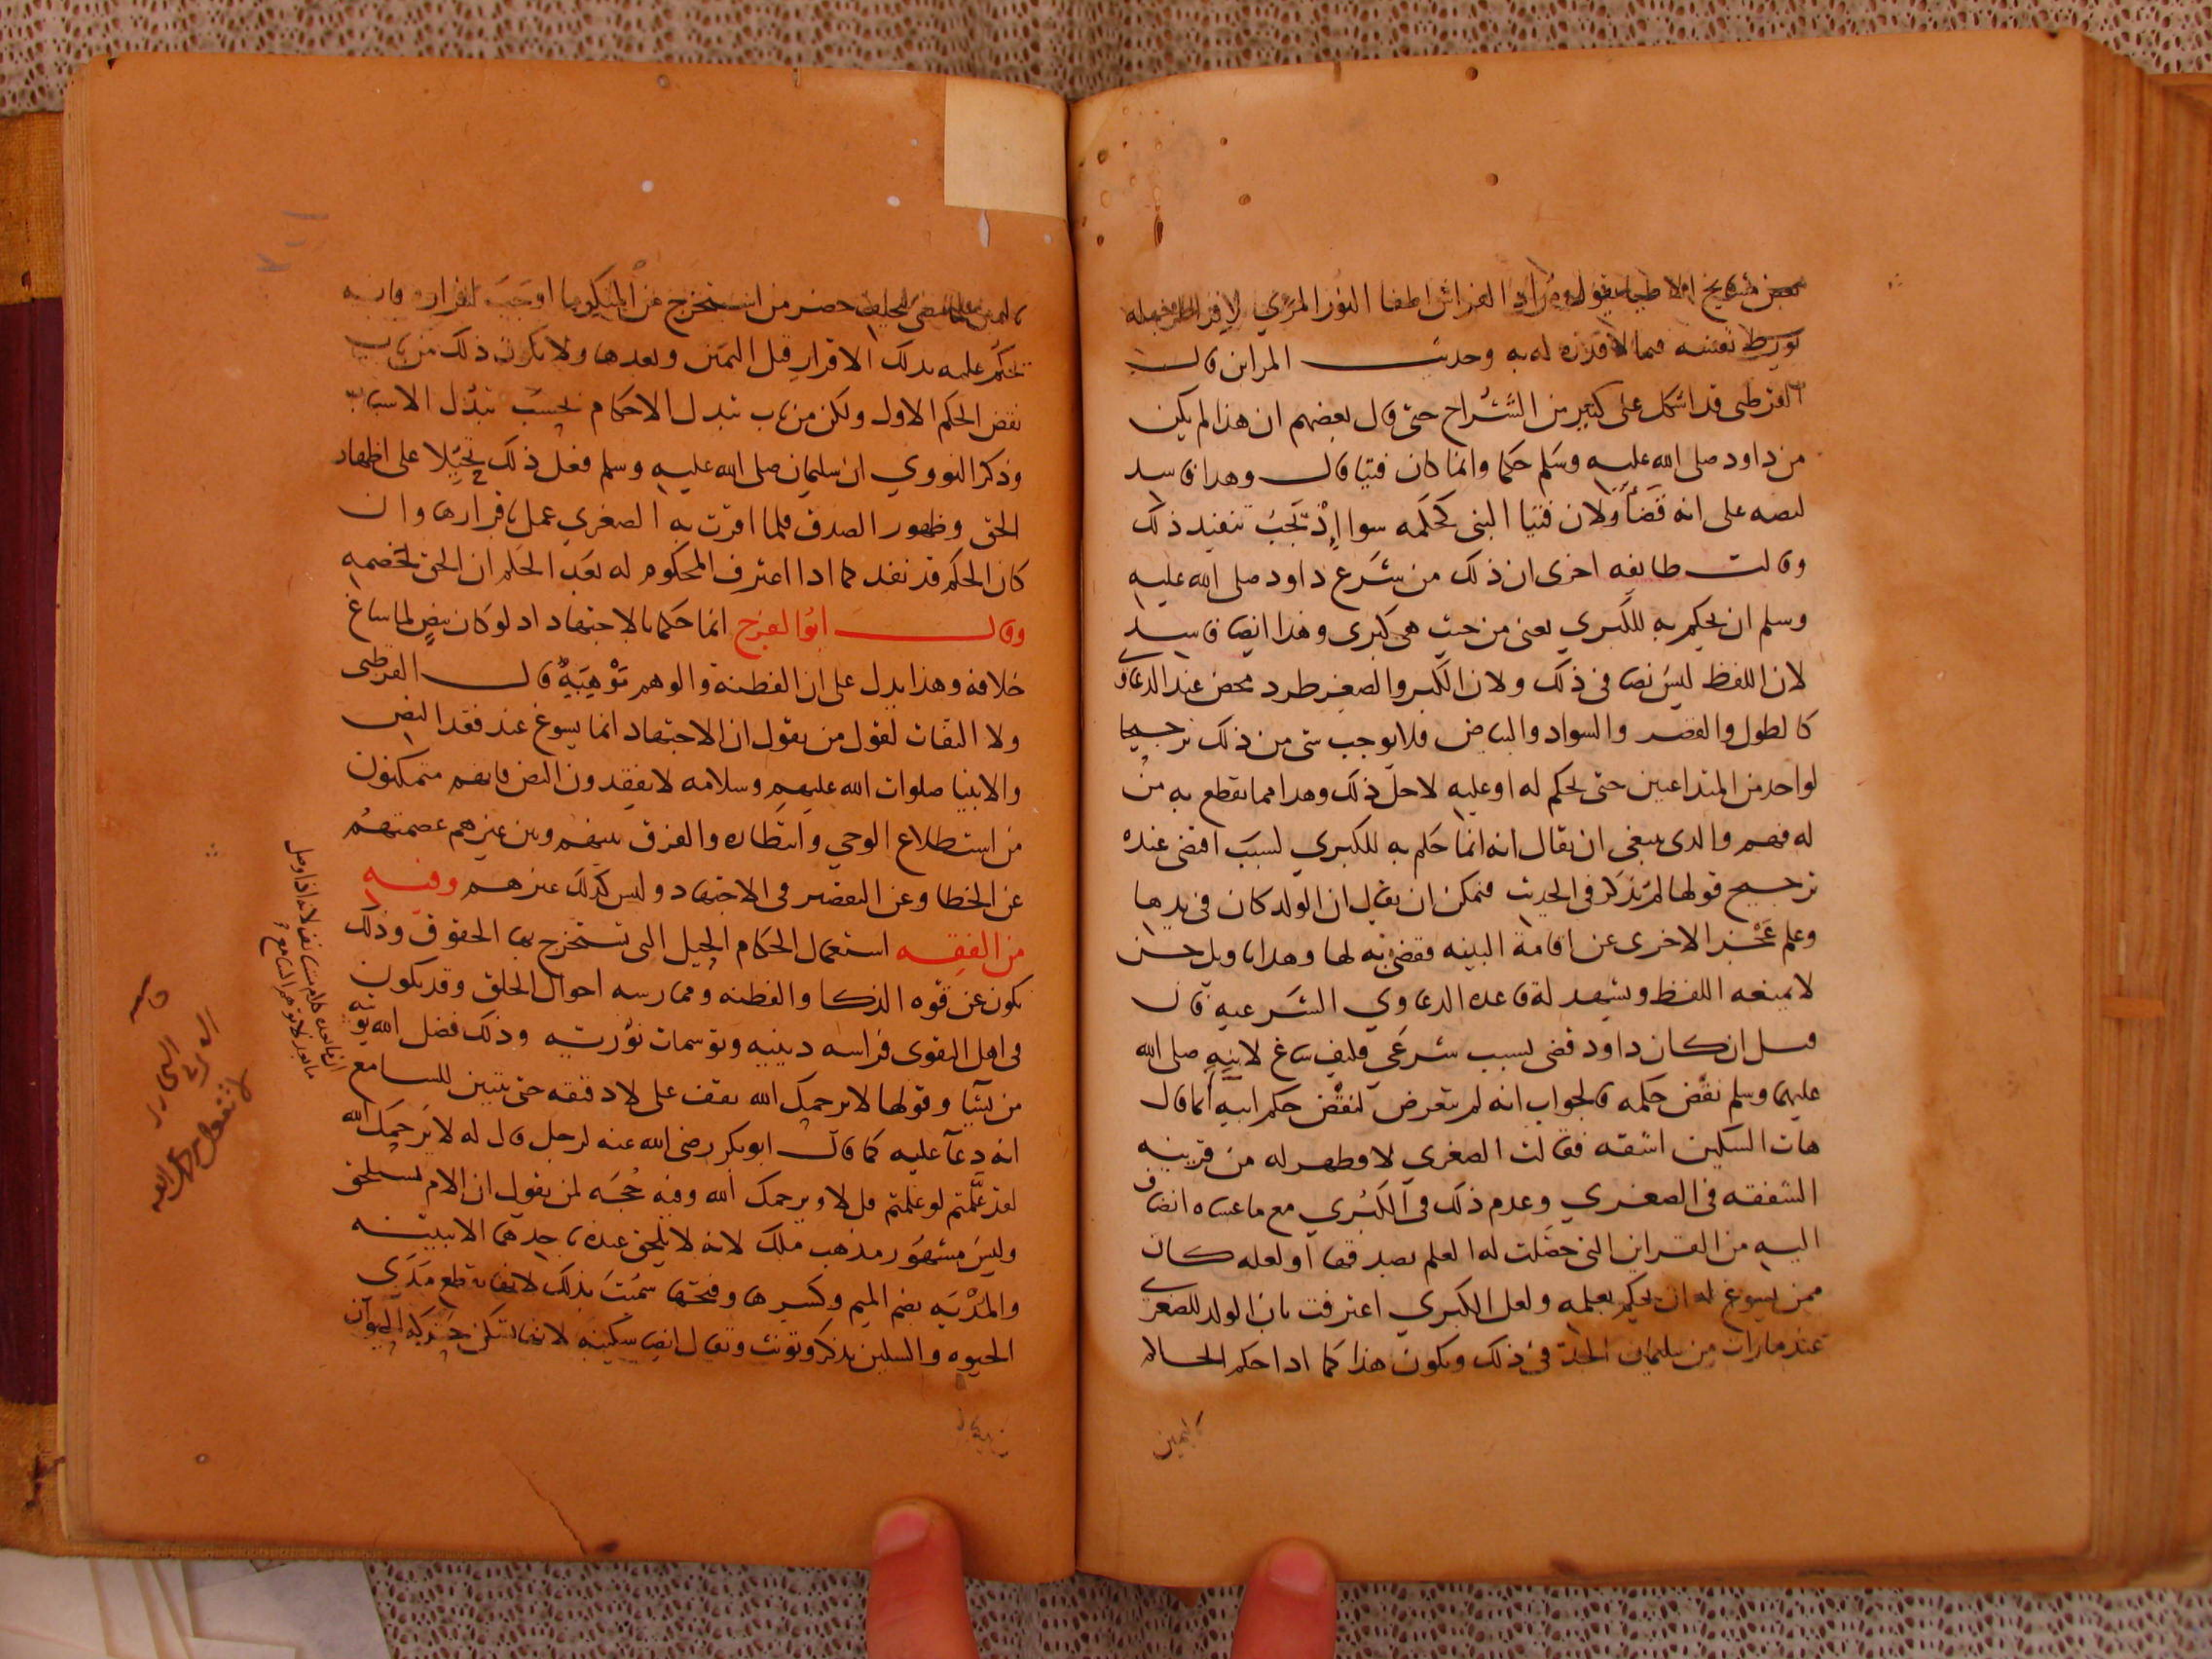 بعض مشايخ الاطبا يقول مراد الفراش اطفا النور المرئي
تورط نفسه فيما لا قدرة له به وحديث المراتين قال
القرطبي قد اشكل على كثير من الشراح حتى قال بعضهم ان هذا لم يكن
من داود صلى الله عليه وسلم حكما وانما كان فتيا قال وهذا فاسد
لنصه على انه قضا ولان فتيا النبي كحكمه سوا اذ تجب تنفيذ ذلك
وقالت طايفه اخرى ان ذلك من شرع داود صلى الله عليه
وسلم ان يحكم به للكبري يعنى من حيث هي كبرى وهذا ايضا فاسد
لان اللفظ ليس نصا في ذلك ولان الكبر والصغر طرد محض عند الدعاوي
كالطول والقصر والسواد والبياض فلا يوجب شي من ذلك ترجيحا
لواحد من المتداعيين حتى يحكم له او عليه لاجل ذلك وهذا مما يقطع به من
له فهم والذي ينبغي ان يقال انه انما حكم به للكبري لسبب اقتضى عنده
ترجيح قولها لم تذكر في الحديث فيمكن ان يقال ان الولد كان في يدها
وعلم عجز الاخرى عن اقامة البينه فقضى به لها وهذا تاويل حسن
لا يمنعه اللفظ ويشهد له قاعدة الدعاوي الشرعيه قال
فسل ان كان داود قضى لسبب شرعي فكيف ساغ لابنه صلى الله
عليهما وسلم نقض حكمه فالجواب انه لم يتعرض لنقض حكم ابيه انما قال
هات السكين اشقه فقالت الصغري لا فظهر له من قرينه
الشفقه في الصغري وعدم ذلك في الكبري مع ما عساه انضاف
اليه من القراين التي حصلت له العلم بصدقها او لعله كان
ممن يسوغ له ان يحكم بعلمه ولعل الكبري اعترفت بان الولد للصغرى
عند ما رات من سليمان الجد في ذلك ويكون هذا كما اذا حكم الحاكم
باليمين
حضر من استخرج من المنكر ما اوجب اقراره فانه
يحكم عليه بذلك الاقرار قبل اليمين وبعدها ولا يكون ذلك من باب
نقض الحكم الاول ولكن من باب تبدل الاحكام بحسب تبدل الاسباب
وذكر النووي ان سليمان صلى الله عليه وسلم فعل ذلك تحيلا على اظهار
الحق وظهور الصدق فلما اقرت به الصغري عمل باقرارها وان
كان الحكم قد نفذ كما اذا اعترف المحكوم له بعد الحكم ان الحق لخصمه
وقال ابو الفرج انما حكما بالاجتهاد اذ لو كان بنص لما ساغ
خلافه وهذا يدل على ان الفطنة والوهم توهبية قال القرطبي
ولا التفات لقول من يقول ان الاجتهاد انما يسوغ عند فقد النص
والانبيا صلوات الله عليهم وسلامه لا يفقدون النص فانهم متمكنون
من استطلاع الوحي وانتظاره والفرق بينهم وبين غيرهم عصمتهم
عن الخطا وعن التقصير في الاجتهاد وليس كذلك غيرهم وفيه
من الفقه استعمال الحكام الحيل التي تستخرج بها الحقوق وذلك
يكون عن قوه الذكا والفطنه وممارسه احوال الخلق وقد يكون
في اهل التقوى فراسه دينيه وتوسمات نوريه وذلك فضل الله يوتيه
من يشا وقولها لا يرحمك الله يقف على لا دقيقه حتى يتبين للسامع
انه دعا عليه كما قال ابو بكر رضي الله عنه لرجل قال له لا يرحمك الله
لقد علمتم لو علمتم قل لا ويرحمك الله وفيه حجه لمن يقول ان الام تستلحق
وليس مشهور مذهب ملك لانه لا يلحق عنده باحدهما الا ببينه
والمدية بضم الميم وكسرها وفتحها سميت بذلك لانها تقطع مدى
الحيوه والسكين يذكر ويونث ويقال ايضا سكينه لانها تسكن حركه الحيوان